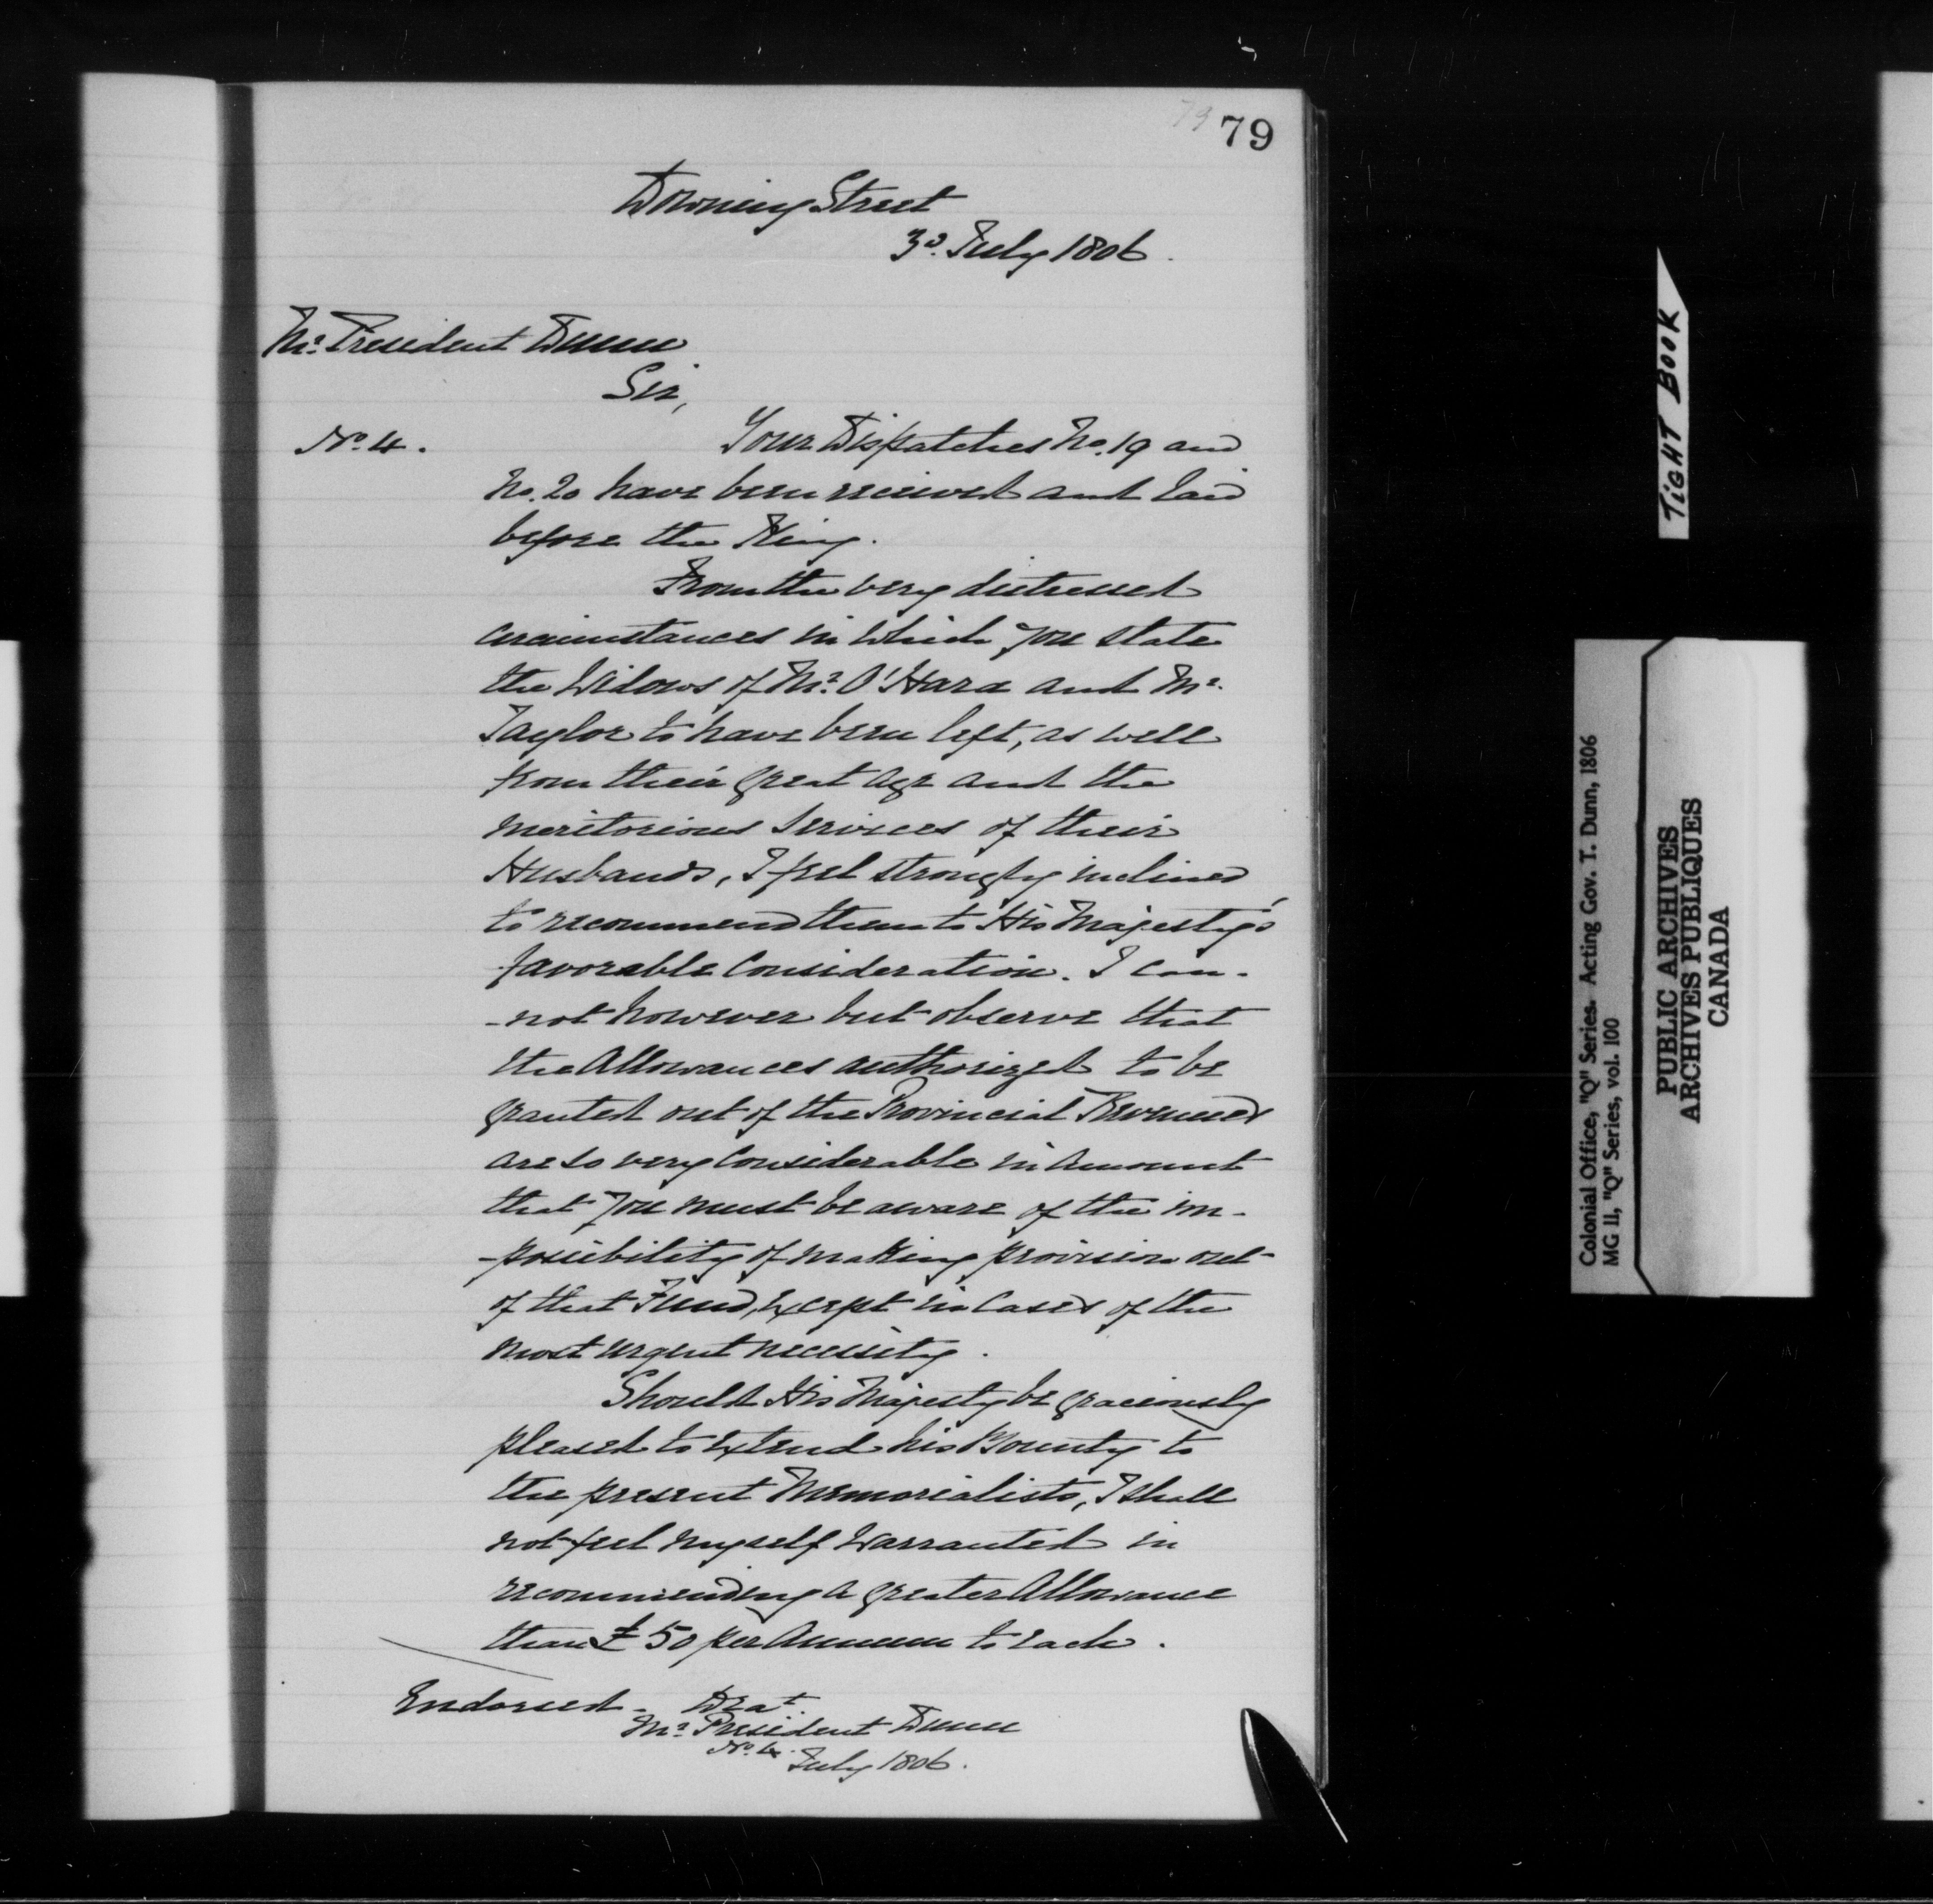 79 79
Downing Street
3d. July 1806.
Mr. President Dunn
Sir,
No. 4. Your Dispatches No. 19 and
No. 20 have been received and laid
before the King.
From the very distressed
circumstances in which you state
the Widows of Mr. O'Hara and Mr.
Taylor to have been left, as well
from their great age and the
meritorious services of their
Husbands, I feel strongly inclined
to recommend them to His Majesty's
favorable Consideration. I can-
-not however but observe that
the Allowances authorized to be
granted out of the Provincial Revenues
are so very Considerable in Amount
that you must be aware of the im-
-possibility of making provision out
of that Fund, except in Cases of the
most urgent necessity.
Should His Majesty be graciously
pleased to extend his Bounty to
the present Memorialists, I shall
not feel myself Warranted in
recommending a greater Allowance
than £50 per Annum to each.
Endorsed - Drat.
Mr. President Dunn
No. 4. July 1806.
TIGHT BOOK
Colonial Office, "Q" Series. Acting Gov. T. Dunn, 1806
MG 11, "Q" Series, vol. 100
PUBLIC ARCHIVES
ARCHIVES PUBLIQUES
CANADA